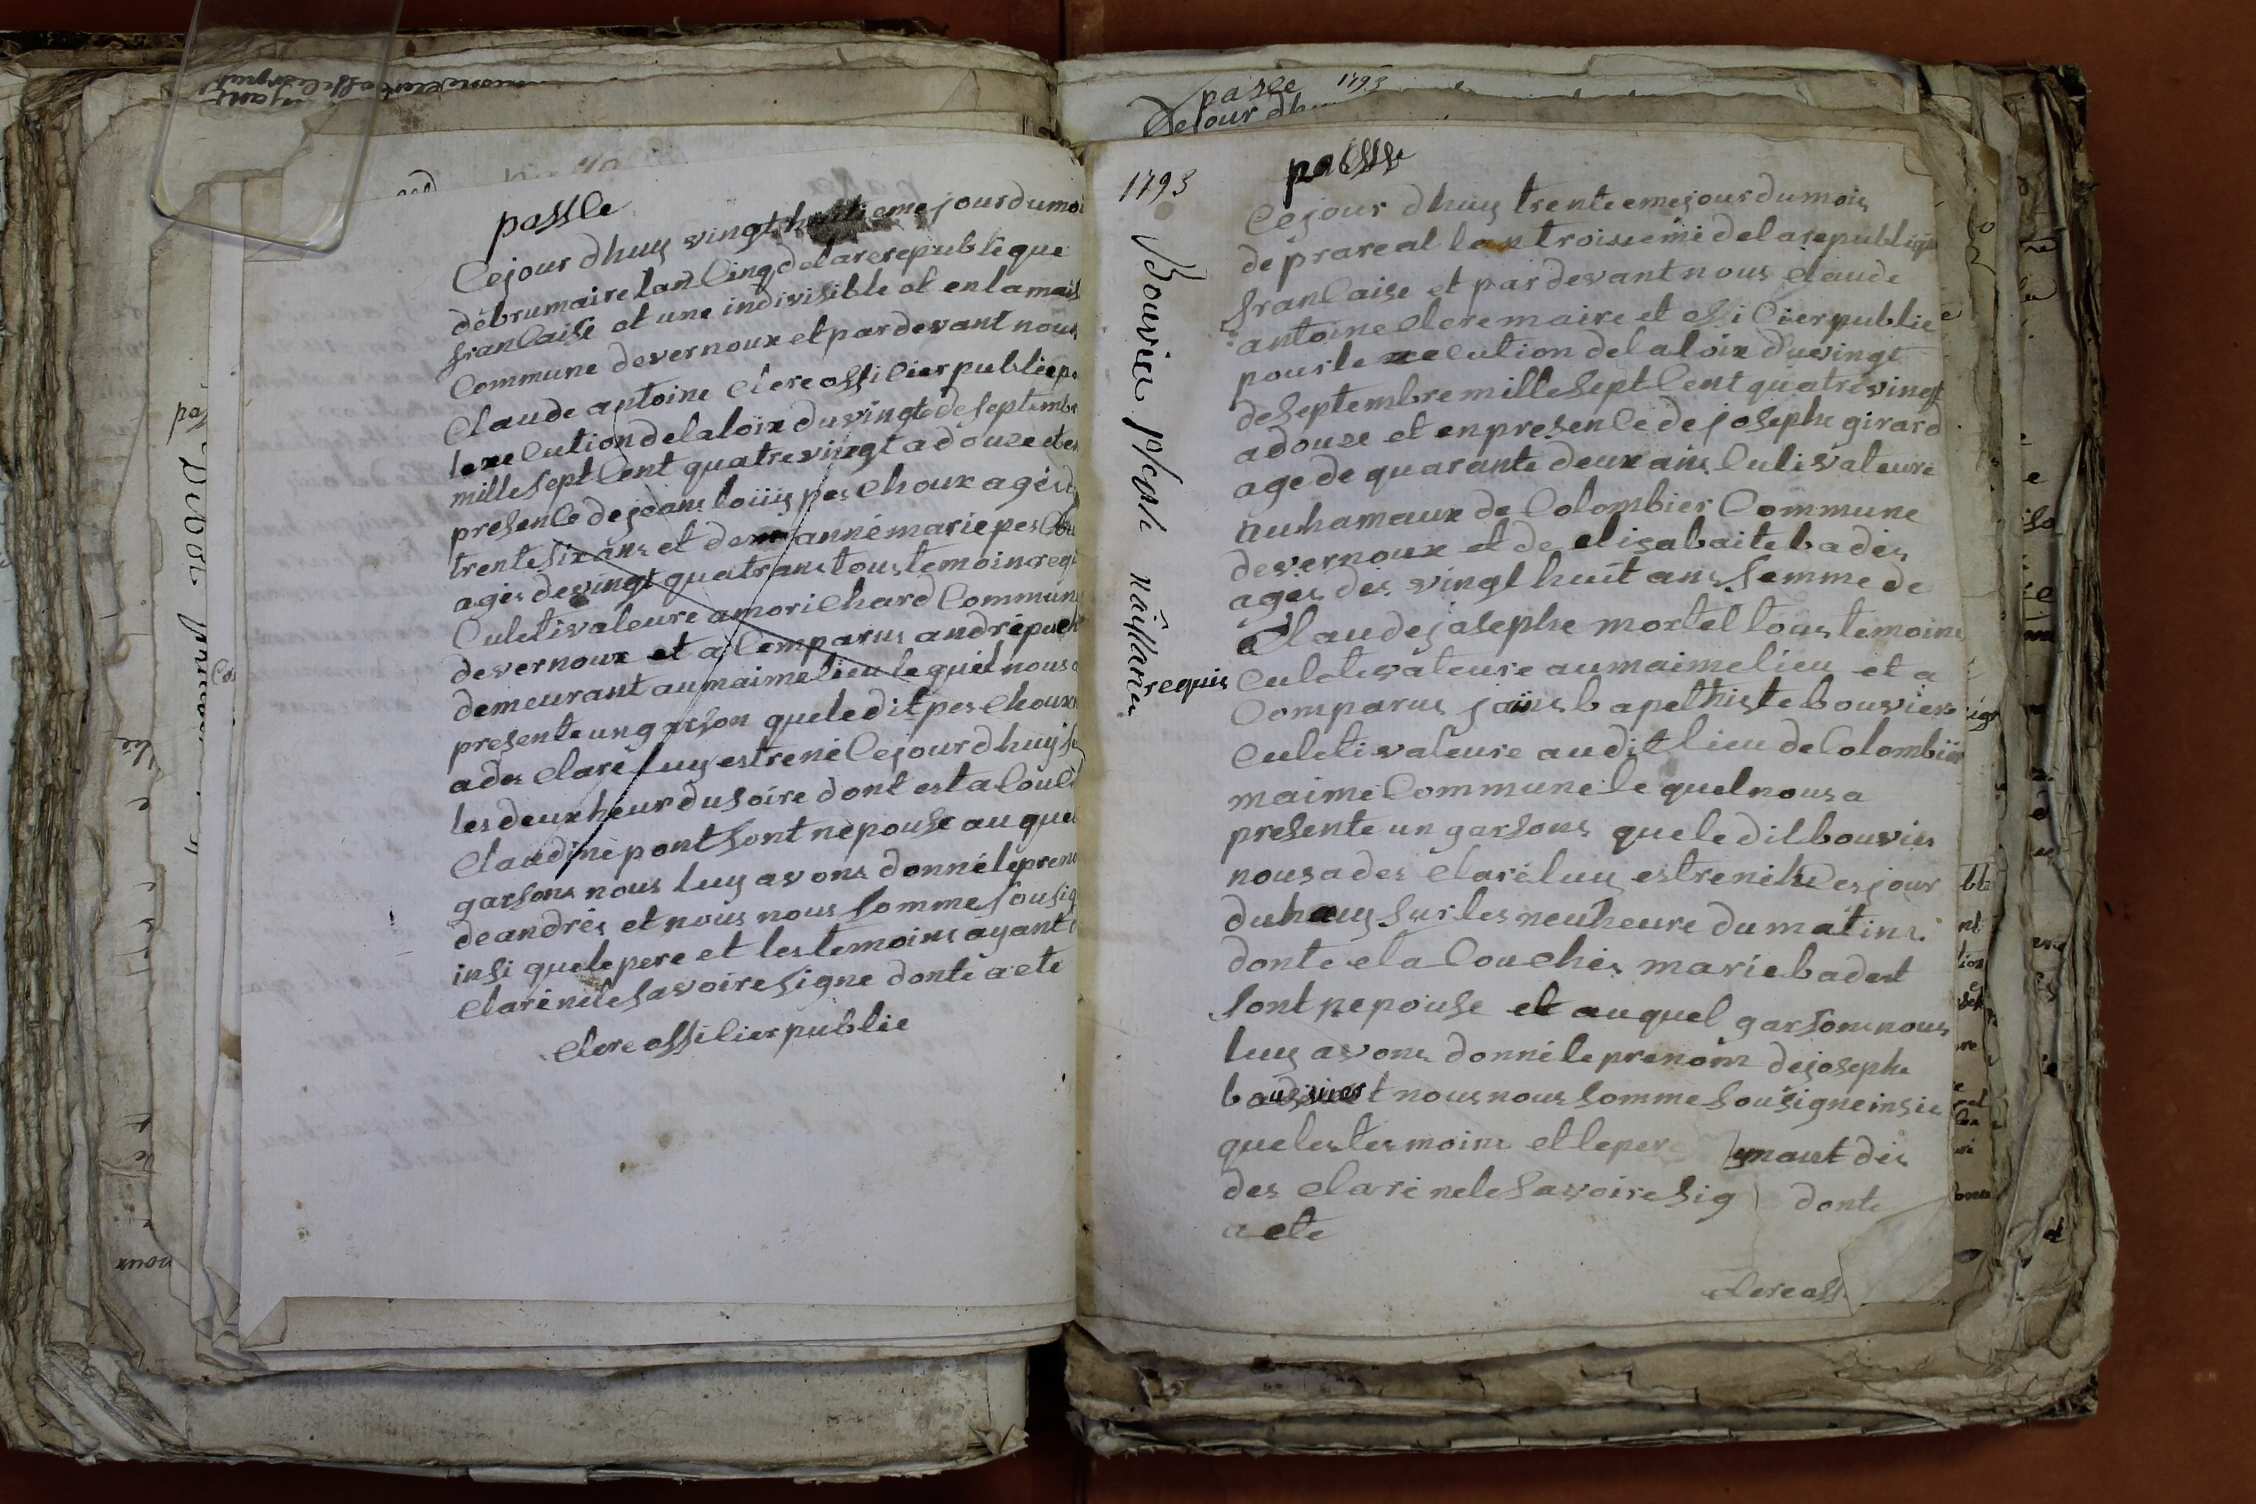 passe
Cejour dhuy vingt huitieme jour dumoi
debrumaire lan Cinq delarerepublique
francaise et une indivisible et enlamais
Commune devernoux et par devant nous
Claude antoine Clere officier publiepo
lexecution delaloix duvingt deseptembr
mille sept Cent quatrevingt adouze et en
presence dejeans louiis peschoux agès
trente six ans et de annémariepes
agès devingt quatrans tous temoinsrequ
Culetivateure amorichard Commun
devernoux et a Comparus andrepech
demeurant aumaimelieu lequel nous a
presente un garson queledit peschoux
ades Claré luy estrené Cejour dhuy su
les deux heur dusoire dont esta Couch
Claudine pont sont nepouse auquel
garsons nous luy avons donné leprenon
deandrés et nous nous somme sousig
insi quelepere et les temoins ayant
Claré nele savoire signe donte acte
Clere officier publie
passe 1793
Dejour dh
1793 passe
Bouvier Josph naissances
Cejour dhuy trenteemejour dumois
de prareal lan troisiemè delarepublique
francaise et par devant nous Claude
antoine Clere maire et officier publie
pourle execution delaloix duvingt
deseptembre mille sept Cent quatrevingt
adouze et enpresence de josephe girard
age de quarante deux ans Culivateure
auhameaux de Colombier Commune
devernoux et de elisabaite bades
agès des vingt huit ans femme de
Claude josephe mortel tous temoins
requis Culetivateure aumaimelieu et a
Comparus jains bapethiste bouviere
Culetivateure audit lieu de Colombier
maime Commune le quel nous a
presente un garsons queledit bouvier
nous ades Claré luy estrené Cesjour
duhuy sur les neuheure du matins
donte ela Couchés marie badest
sont nepouse et auquel garsons nous
luy avons donné le prenom dejosephe
bouvier et nous nous somme sousigne insie
que les tesmoins et le pere ayant dés
des Claré nele savoire sig donte
acte
Clere off